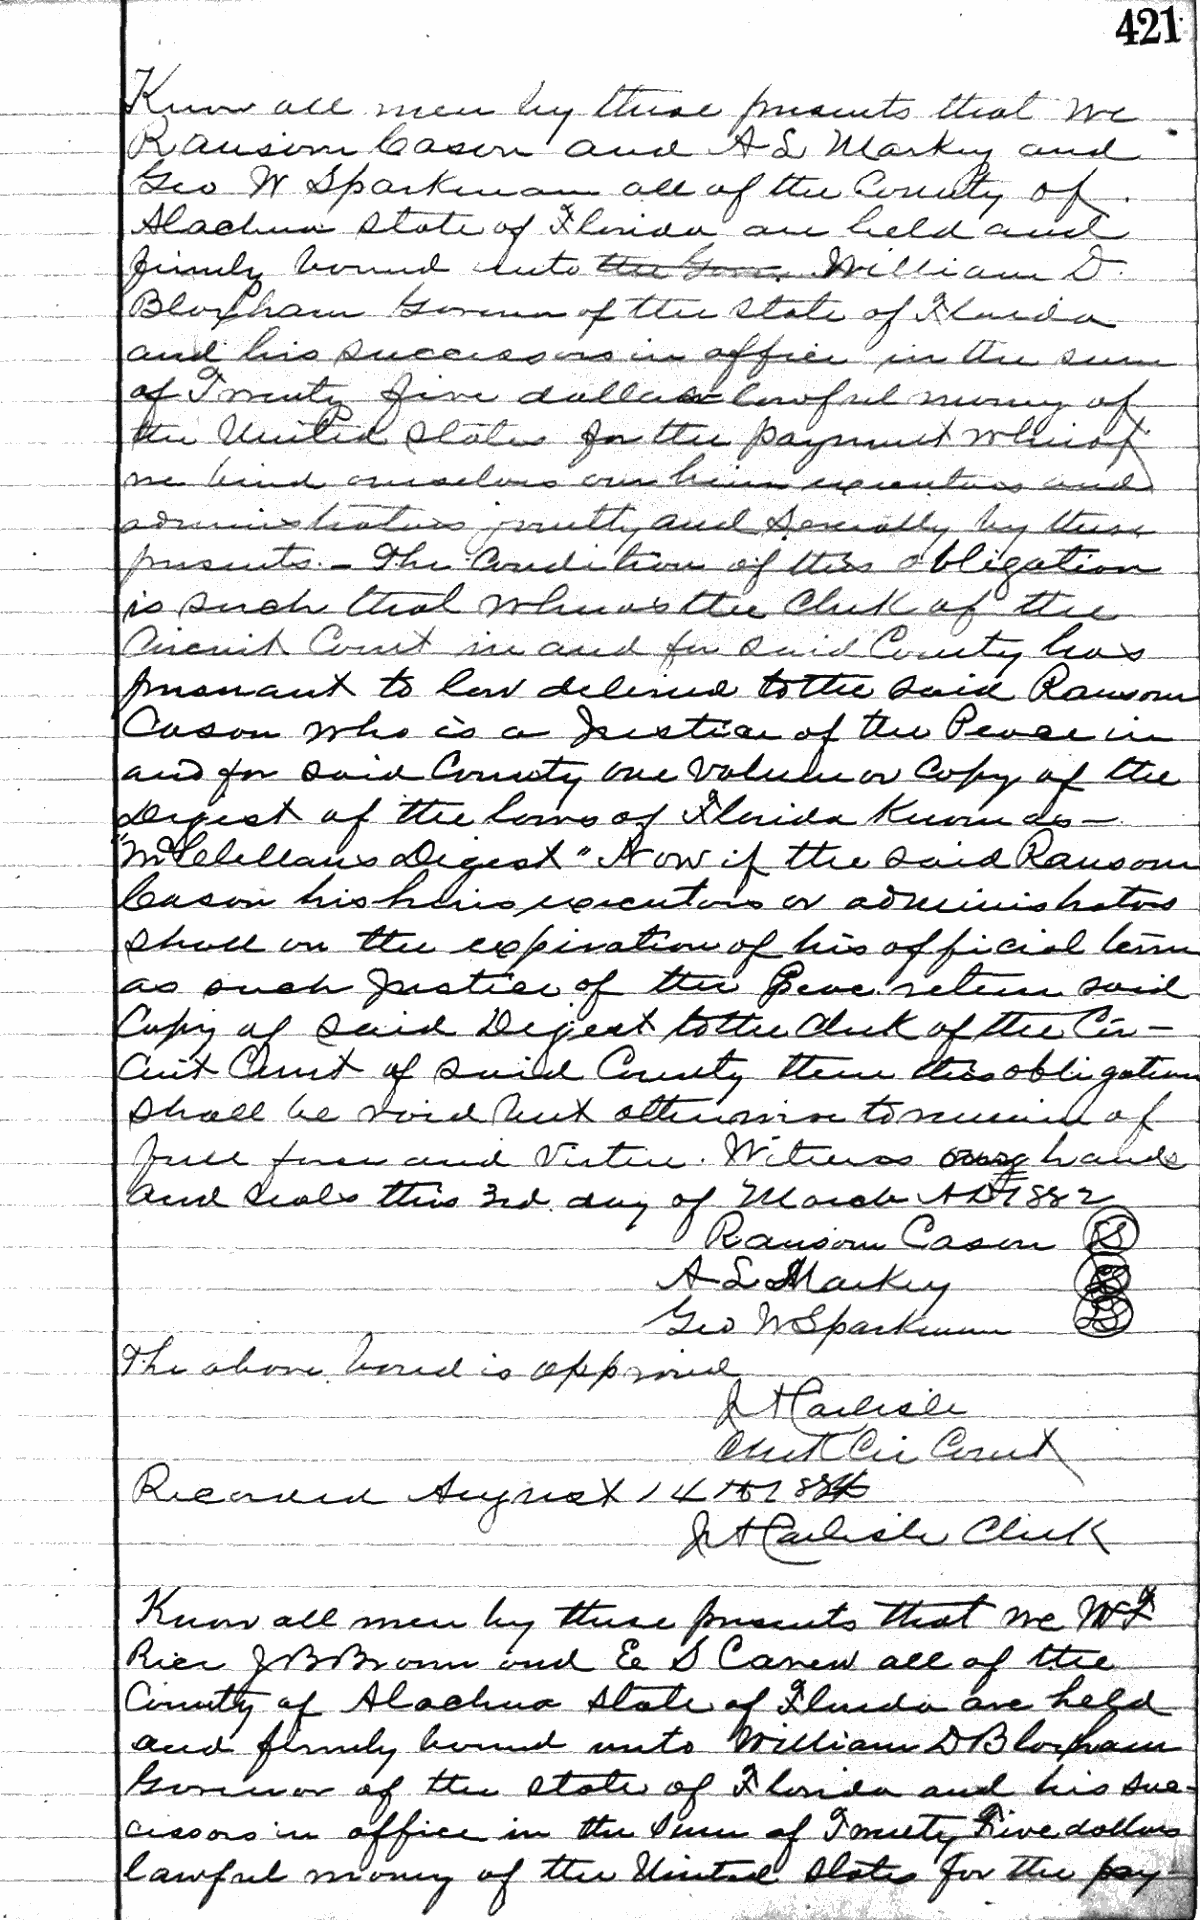 421
Know all men by these presents that we
Ransom Cason and A L Markey and
Geo W Sparkman all of the County of
Alachua State of Florida are held and
firmly bound unto the Gov. William D.
Bloxham Governor of the State of Florida
and his successors in office in the sum
of Twenty five dollars lawful money of
the United States for the payment whereof
we bind ourselves our heirs executors and
administrators jointly and severally by these
presents. — The Condition of this obligation
is such that whereas the Clerk of the
Circuit Court in and for said County has
pursuant to law delivered to the said Ransom
Cason who is a Justice of the Peace in
and for said County one volume or Copy of the
Digest of the laws of Florida Known as —
"McClellans Digest" Now if the said Ransom
Cason his heirs executors or administrators
shall on the expiration of his official term
as such Justice of the Peace return said
Copy of said Digest to the Clerk of the Cir-
cuit Court of said County then this obligation
shall be void but otherwise to remain of
full force and virtue. Witness our hands
and seals this 3rd day of March AD 1882
Ransom Cason LS
A L Markey LS
Geo W Sparkman LS
The above bond is approved
J A Carlisle
Clerk Cir Court
Recorded August 14th 1884
J A Carlisle Clerk
Know all men by these presents that we W F
Rice J B Brown and E S Carew all of the
County of Alachua State of Florida are held
and firmly bound unto William D Bloxham
Governor of the State of Florida and his suc-
cessors in office in the sum of Twenty Five dollars
lawful money of the United States for the pay-